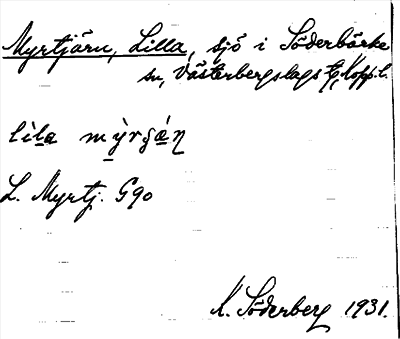 Myrtjärn, Lilla, sjö i Söderbärke
sn, Västerbergslags tg, Kopp. l.
lìla mỳrʒán
L. Myrtj. G90
K. Söderberg 1931.